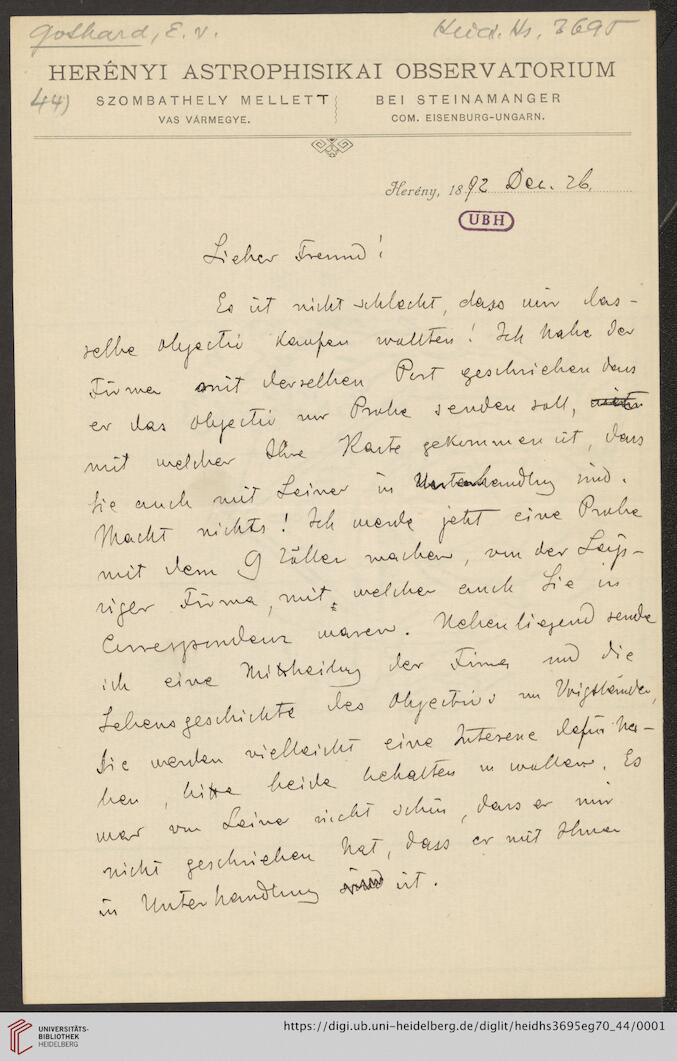 Gothard, E. v.
Heid. Hs. 3695
HERÉNYI ASTROPHISIKAI OBSERVATORIUM
44)
SZOMBATHELY MELLETT
BEI STEINAMANGER
VAS VÁRMEGYE.
COM. EISENBURG-UNGARN.
Herény, 1892 Dec. 26.
UBH
Lieber Freund!
Es ist nicht schlecht, dass wir das-
selbe Objectiv kaufen wollten! Ich habe der
Firma mit derselben Post geschrieben dass
er das Objectiv zur Probe senden soll,
mit welcher Ihre Karte gekommen ist, dass
Sie auch mit Leiner in Unterhandlung sind.
Macht nichts! Ich werde jetzt eine Probe
mit dem 9 Zöller machen, von der Leip-
ziger Firma, mit welcher auch Sie in
Correspondenz waren. Nebenliegend sende
ich eine Mittheilung der Firma und die
Lebensgeschichte des Objectivs von Voigtländer,
Sie werden vielleicht eine Interesse dafür ha-
ben, bitte beide behalten zu wollen. Es
war von Leiner nicht schön, dass er mir
nicht geschrieben hat, dass er mit Ihnen
in Unterhandlung ist.
UNIVERSITÄTS-
BIBLIOTHEK
HEIDELBERG
https://digi.ub.uni-heidelberg.de/diglit/heidhs3695eg70_44/0001